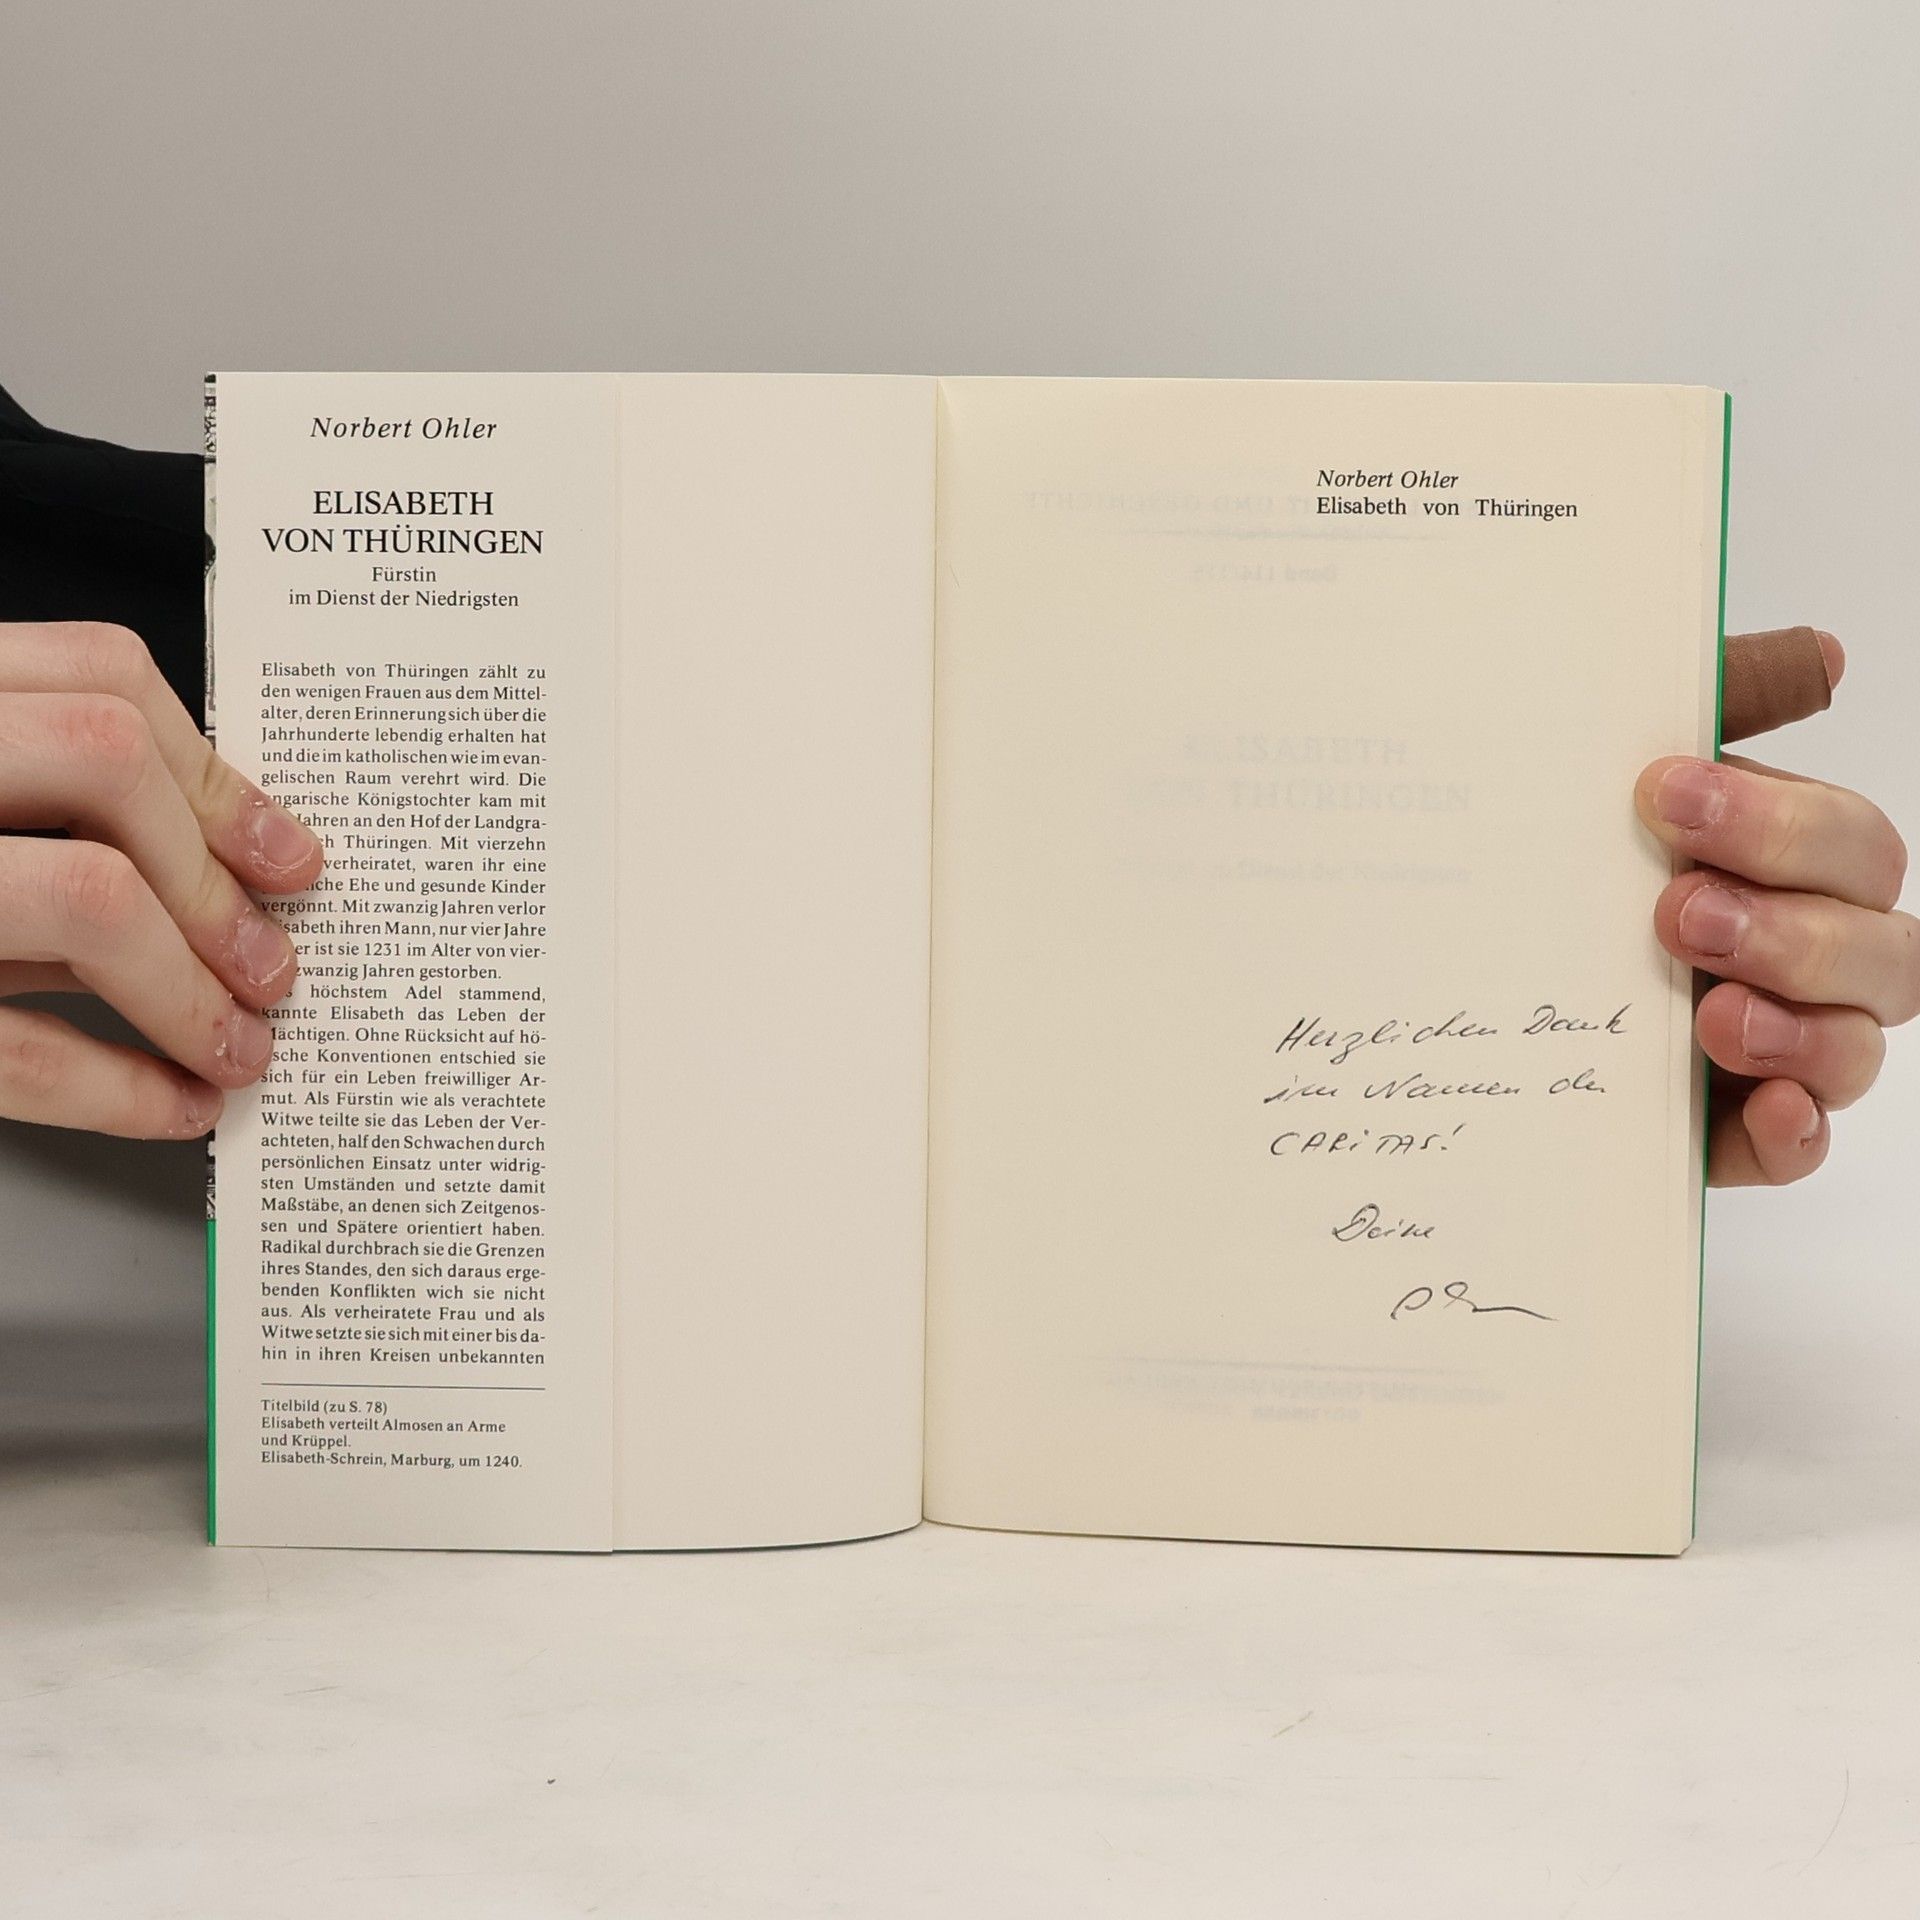 Norbert Ohler
ELISABETH
VON THÜRINGEN
Fürstin
im Dienst der Niedrigsten
Elisabeth von Thüringen zählt zu
den wenigen Frauen aus dem Mittel-
alter, deren Erinnerung sich über die
Jahrhunderte lebendig erhalten hat
und die im katholischen wie im evan-
gelischen Raum verehrt wird. Die
ngarische Königstochter kam mit
Jahren an den Hof der Landgra-
ch Thüringen. Mit vierzehn
verheiratet, waren ihr eine
iche Ehe und gesunde Kinder
vergönnt. Mit zwanzig Jahren verlor
isabeth ihren Mann, nur vier Jahre
er ist sie 1231 im Alter von vier-
zwanzig Jahren gestorben.
s höchstem Adel stammend,
kannte Elisabeth das Leben der
Mächtigen. Ohne Rücksicht auf hö-
sche Konventionen entschied sie
sich für ein Leben freiwilliger Ar-
mut. Als Fürstin wie als verachtete
Witwe teilte sie das Leben der Ver-
achteten, half den Schwachen durch
persönlichen Einsatz unter widrig-
sten Umständen und setzte damit
Maßstäbe, an denen sich Zeitgenos-
sen und Spätere orientiert haben.
Radikal durchbrach sie die Grenzen
ihres Standes, den sich daraus erge-
benden Konflikten wich sie nicht
aus. Als verheiratete Frau und als
Witwe setzte sie sich mit einer bis da-
hin in ihren Kreisen unbekannten
Titelbild (zu S. 78)
Elisabeth verteilt Almosen an Arme
und Krüppel.
Elisabeth-Schrein, Marburg, um 1240.
Norbert Ohler
Elisabeth von Thüringen
Herzlichen Dank
im Namen der
CARiTAS!
Deine